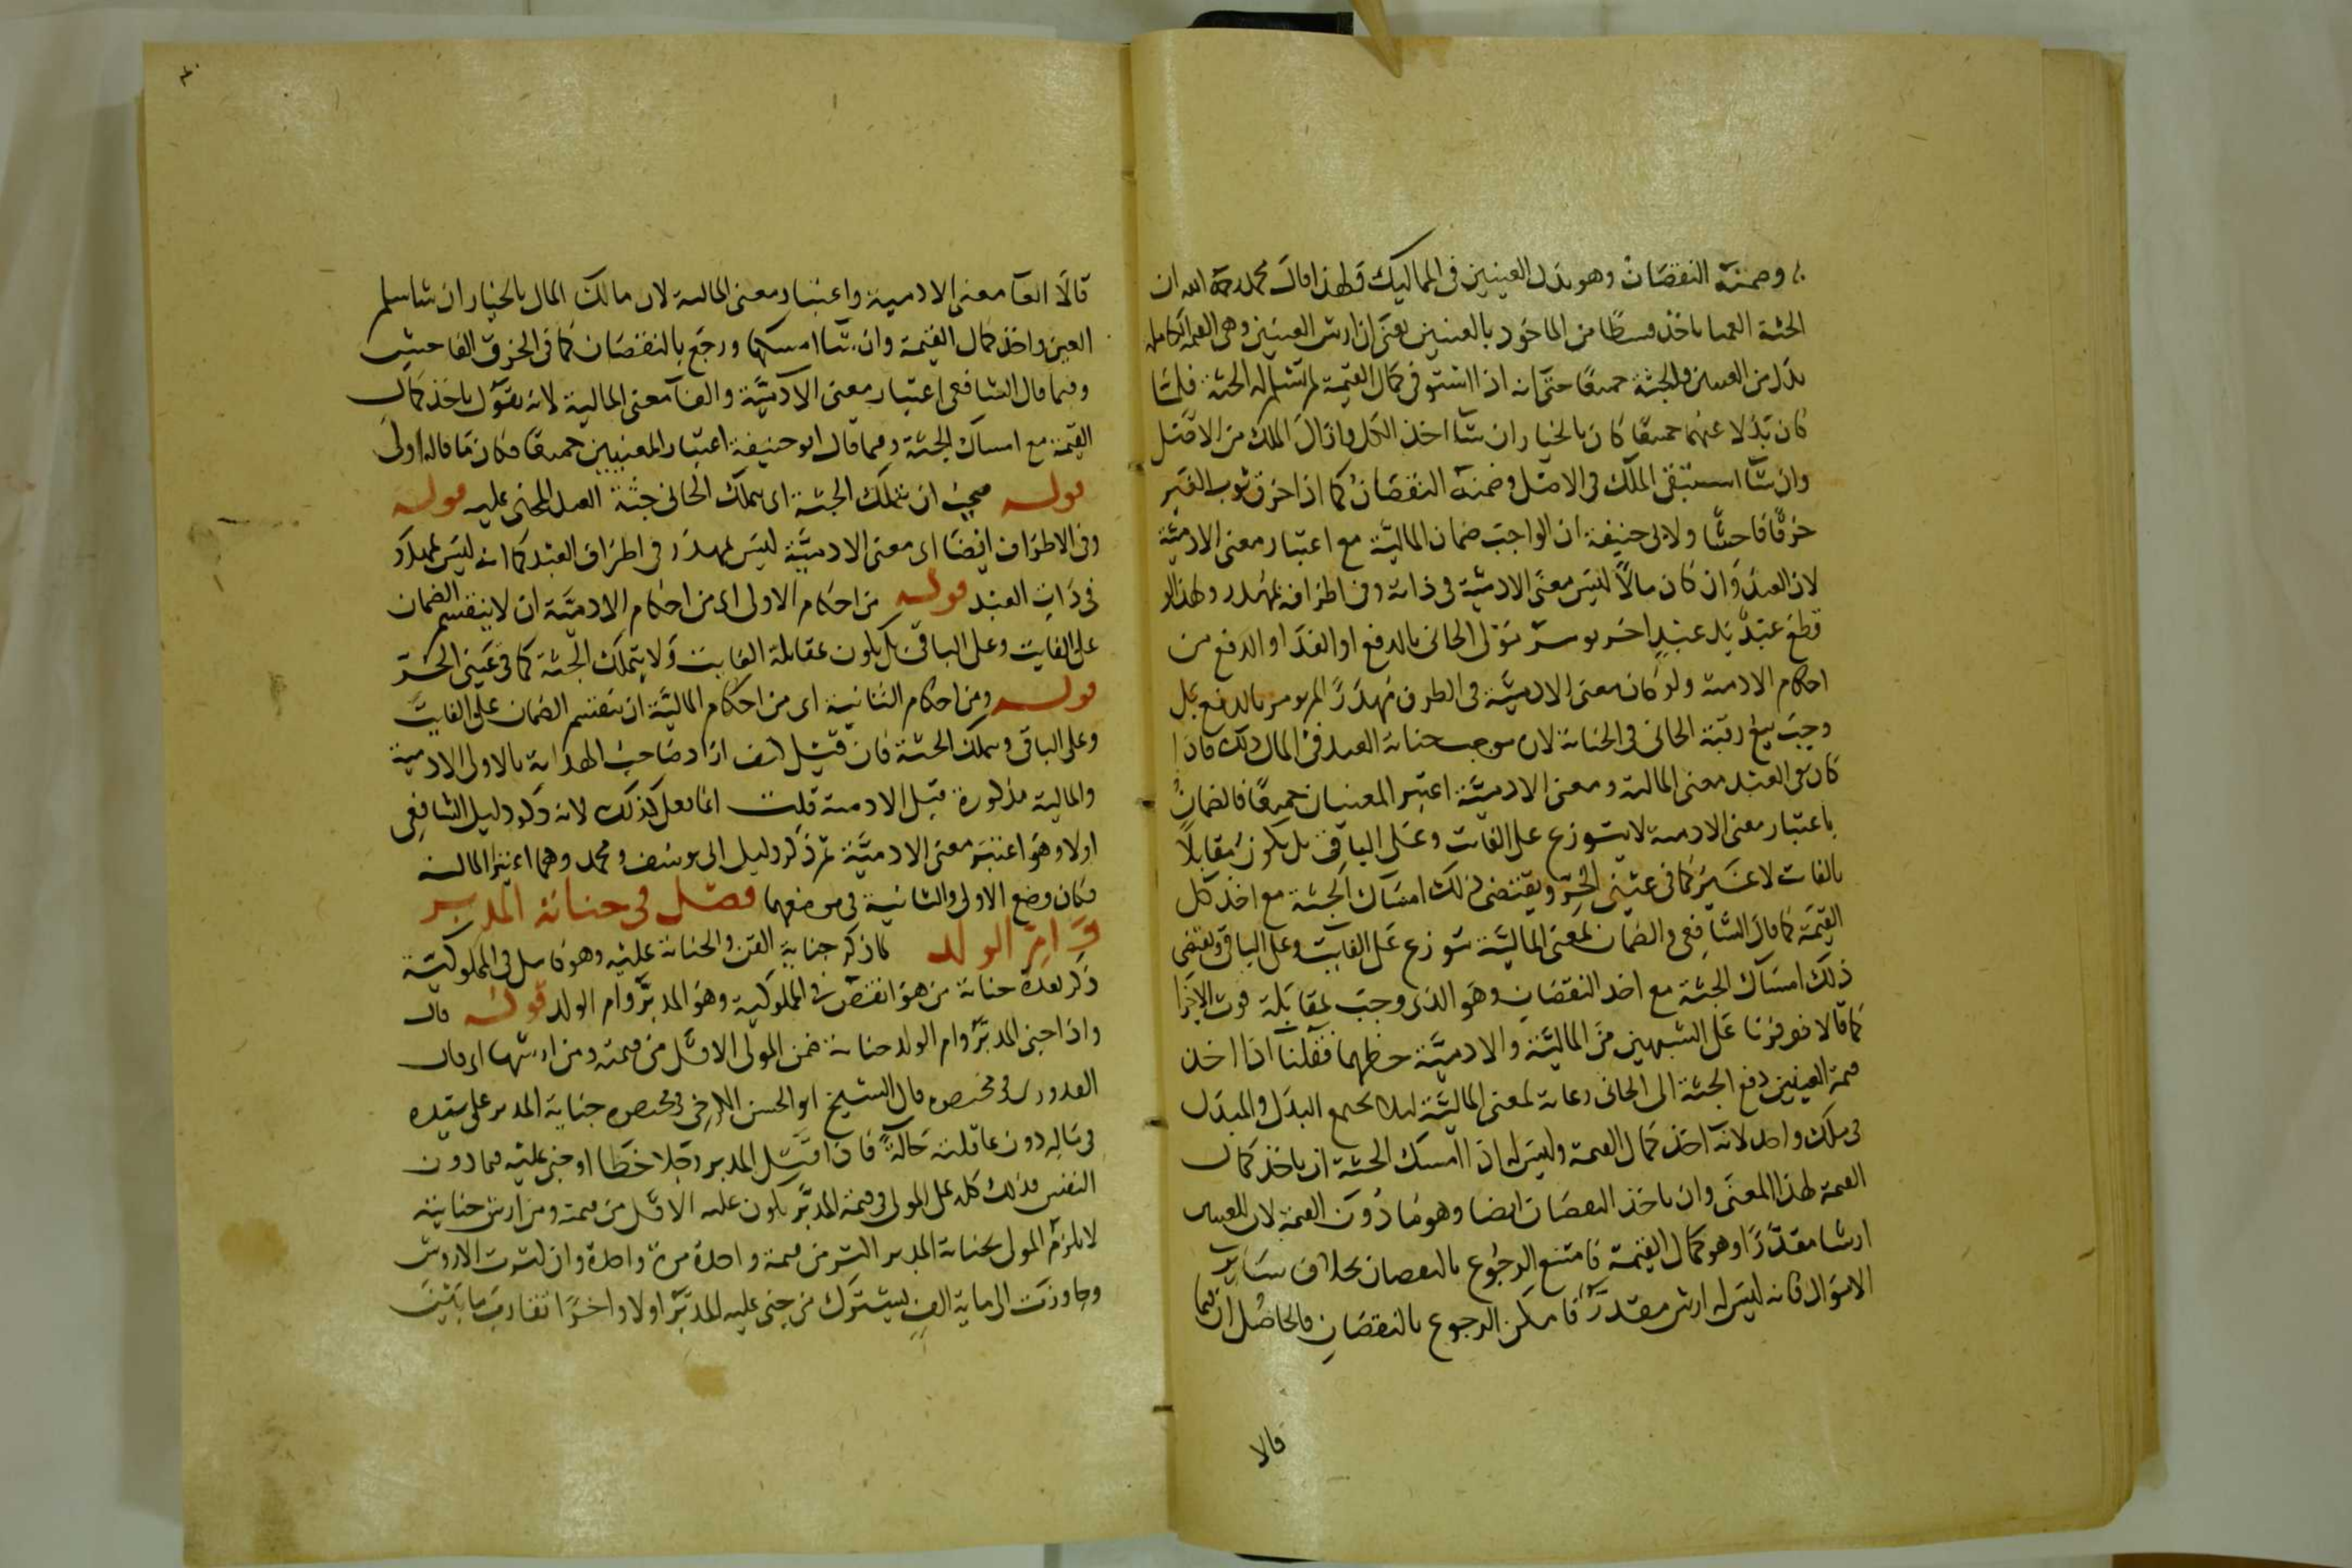 وضمنه النقصان وهو بدل العينين في المماليك ولهذا قال محمد رحمه الله ان
الجثة العميا ياخذ قسطا من الماخوذ بالعينين يعني ان ارش العينين وهي القيمة الكاملة
بدل من العينين والجثة جميعا حتى انه اذا استوفى كمال القيمة لم تسلم له الجثة فلما
كان بدلا عنهما جميعا كان بالخيار ان شا اخذ الكل وازال الملك من الاصل
وان شا استبقى الملك في الاصل وضمنه النقصان كما اذا خرق ثوب الغير
خرقا فاحشا ولابي حنيفة ان الواجب ضمان المالية مع اعتبار معنى الادمية
لان العبد وان كان مالا ليس معنى الادمية في ذاته وفي اطرافه بمهدر ولهذا لو
قطع عبد يد عبد اخر يومر مولى الجاني بالدفع او الفدا والدفع من
احكام الادمية ولو كان معنى الادمية في الطرف مهدرا لم يومر بالدفع بل
وجب بيع رقبة الجاني في الجناية لان موجب جناية العبد في المال ذلك فاذا
كان في العبد معنى المالية ومعنى الادمية اعتبر المعنيان جميعا فالضمان
باعتبار معنى الادمية لا يتوزع على الفايت وعلى الباقي بل يكون مقابلا
بالفايت لا غير كما في عيني الحر ويقتضي ذلك امساك الجثة مع اخذ كل
القيمة كما قال الشافعي والضمان لمعنى المالية يتوزع على الفايت وعلى الباقي ويقتضي
ذلك امساك الجثة مع اخذ النقصان وهو الذي وجب بمقابلة فوت الاجزا
كما قالا فوفرنا على الشبهين من المالية والادمية حظهما فقلنا اذا اخذ
قيمة العينين دفع الجثة الى الجاني رعاية لمعنى المالية ليلا يجتمع البدل والمبدل
في ملك واحد لانه اخذ كمال القيمة وليس له اذا امسك الجثة ان ياخذ كمال
القيمة لهذا المعنى وان ياخذ النقصان ايضا وهو ما دون القيمة لان للعينين
ارشا مقدرا وهو كمال القيمة فامتنع الرجوع بالنقصان بخلاف ساير
الاموال فانه ليس له ارش مقدر فامكن الرجوع بالنقصان فالحاصل ان فيما
قالا
قالا الغا معنى الادمية واعتبار معنى المالية لان مالك المال بالخيار ان شا سلم
العين واخذ كمال القيمة وان شا امسكها ورجع بالنقصان كما في الخرق الفاحش
وفيما قال الشافعي اعتبار معنى الادمية والغا معنى المالية لانه يقول ياخذ كمال
القيمة مع امساك الجثة وفيما قال ابو حنيفة اعتبار المعنيين جميعا فكان ما قاله اولى
قوله ان تملك الجثة اي يملك الجاني جثة العبد المجني عليه قوله
وفي الاطراف ايضا اي معنى الادمية ليس بمهدر في اطراف العبد كما انه ليس بمهدر
في ذات العبد قوله من احكام الاولى اي من احكام الادمية ان لا ينقسم الضمان
على الفايت وعلى الباقي بل يكون بمقابلة الفايت ولا يتملك الجثة كما في عيني الحر
قوله ومن احكام الثانية اي من احكام المالية ان ينقسم الضمان على الفايت
وعلى الباقي ويملك الجثة فان قيل كيف اراد صاحب الهداية بالاولى الادمية
والمالية مذكورة قبل الادمية قلت انما فعل كذلك لانه ذكر دليل الشافعي
اولا وهو اعتبر معنى الادمية ثم ذكر دليل ابي يوسف ومحمد وهما اعتبرا المالية
فكان وضع الاولى والثانية في موضعهما فصل في جناية المدبر
وام الولد لما ذكر جناية القن والجناية عليه وهو كامل في المملوكية
ذكر بعده جناية من هو انقص في المملوكية وهو المدبر وام الولد قوله قال
واذا جنى المدبر وام الولد جناية ضمن المولى الاقل من قيمته ومن ارشها اي قال
القدوري في مختصره قال الشيخ ابو الحسن الكرخي في مختصره جناية المدبر على سيده
في ماله دون عاقلته حالة فاذا قتل المدبر رجلا خطا او جنى عليه فيما دون
النفس فذلك كله على المولى في قيمة المدبر يكون عليه الاقل من قيمته ومن ارش جنايته
لا يلزم المولى بجناية المدبر اكثر من قيمة واحدة مرة واحدة وان كثرت الاروش
وجاوزت الى ماية الف يشترك من جنى عليه المدبر اولا واخرا تقارب ما بين